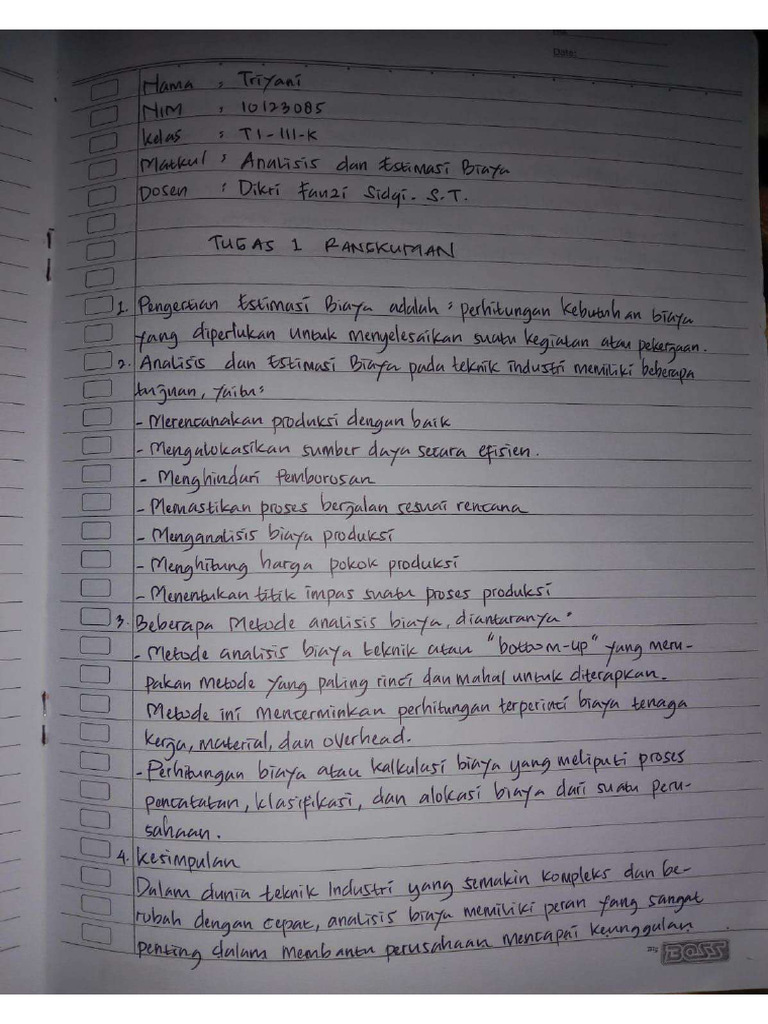 Date:
Nama : Triyani
NIM : 10123085
Kelas : TI-III-K
Matkul : Analisis dan Estimasi Biaya
Dosen : Dikri Fauzi Sidqi. S.T.
TUGAS 1 RANGKUMAN
1. Pengertian Estimasi Biaya adalah : perhitungan kebutuhan biaya
yang diperlukan untuk menyelesaikan suatu kegiatan atau pekerjaan.
2. Analisis dan Estimasi Biaya pada teknik industri memiliki beberapa
tujuan, yaitu:
- Merencanakan produksi dengan baik
- Mengalokasikan sumber daya secara efisien.
- Menghindari Pemborosan
- Memastikan proses berjalan sesuai rencana
- Menganalisis biaya produksi
- Menghitung harga pokok produksi
- Menentukan titik impas suatu proses produksi
3. Beberapa Metode analisis biaya, diantaranya :
- Metode analisis biaya teknik atau "bottom-up" yang meru-
pakan metode yang paling rinci dan mahal untuk diterapkan.
Metode ini mencerminkan perhitungan terperinci biaya tenaga
kerja, material, dan overhead.
- Perhitungan biaya atau kalkulasi biaya yang meliputi proses
pencatatan, klasifikasi, dan alokasi biaya dari suatu peru-
sahaan.
4. Kesimpulan
Dalam dunia teknik Industri yang semakin kompleks dan be-
rubah dengan cepat, analisis biaya memiliki peran yang sangat
penting dalam membantu perusahaan mencapai keunggulan
BOSS